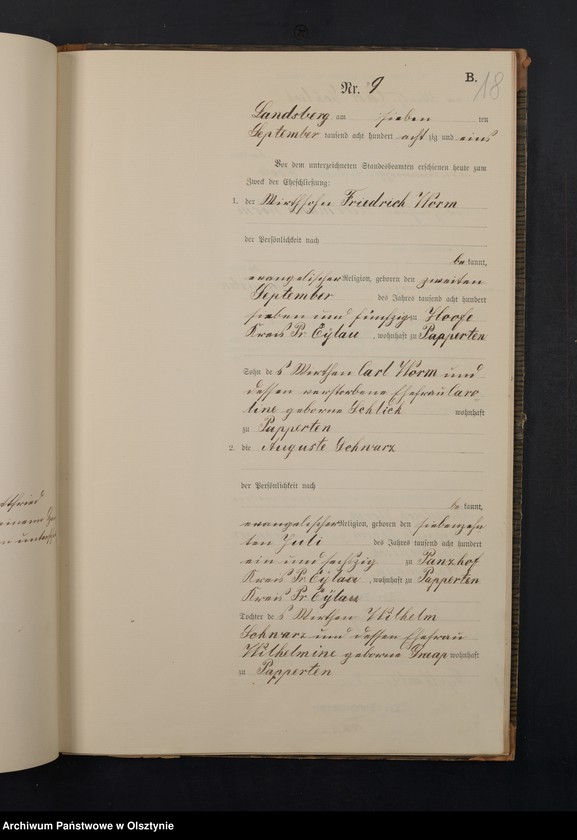 B.
18
Nr. 9
Landsberg am sieben ten
September tausend acht hundert acht zig und eins
Vor dem unterzeichneten Standesbeamten erschienen heute zum
Zweck der Eheschließung:
1. der Wirthssohn Friedrich Worm
der Persönlichkeit nach
be kannt,
evangelischer Religion, geboren den zweiten
September des Jahres tausend acht hundert
sieben und fünfzig zu Hoofe
Kreis Pr. Eylau, wohnhaft zu Papperten
Sohn des Wirthen Carl Worm und
dessen verstorbene Ehefrau Caro-
line geborne Schlick wohnhaft
zu Papperten
2. die Auguste Schwarz
der Persönlichkeit nach
be kannt,
evangelischer Religion, geboren den siebenzehn
ten Juli des Jahres tausend acht hundert
ein und sechszig zu
Kreis Pr. Eylau, wohnhaft zu Papperten
Kreis Pr. Eylau
Tochter des Wirthen Wilhelm
Schwarz und dessen Ehefrau
Wilhelmine geborne wohnhaft
zu Papperten
Archiwum Państwowe w Olsztynie